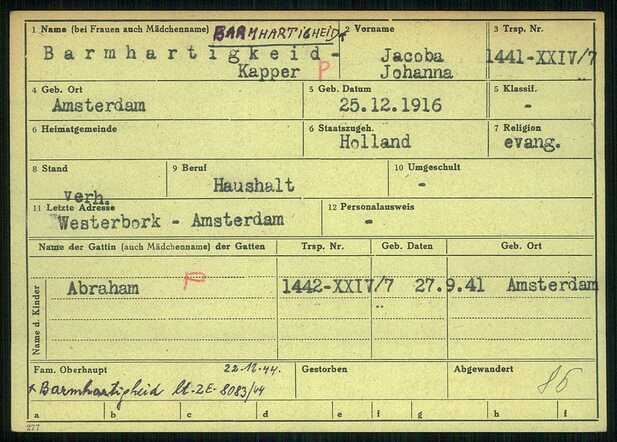 1 Name (bei Frauen auch Mädchenname) BARMHARTIGHEID
2 Vorname
3 Trsp. Nr.
Barmhartigkeid-
Kapper P
Jacoba
Johanna
1441-XXIV/7
4 Geb. Ort
5 Geb. Datum
5 Klassif.
Amsterdam
25.12.1916
-
6 Heimatgemeinde
6 Staatszugeh.
7 Religion
Holland
evang.
8 Stand
9 Beruf
10 Umgeschult
verh.
Haushalt
-
11 Letzte Adresse
12 Personalausweis
Westerbork - Amsterdam
-
Name der Gattin (auch Mädchenname) der Gatten
Trsp. Nr.
Geb. Daten
Geb. Ort
Name d. Kinder
Abraham P 1442-XXIV/7 27.9.41 Amsterdam
Fam. Oberhaupt
22.12.44.
Gestorben
Abgewandert
Barmhartigheid lt. 2E-8083/44
86
a b c d e f g h f
277